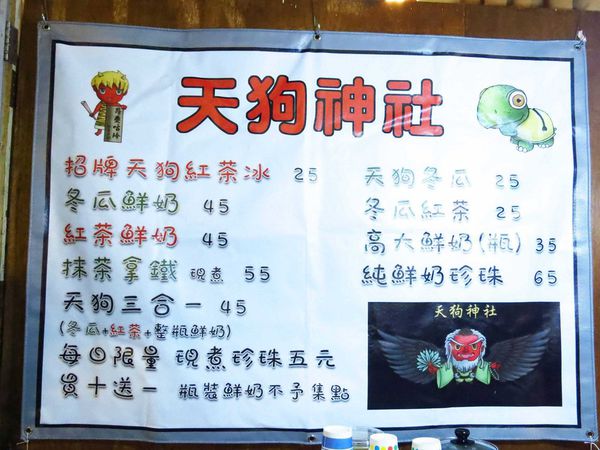 天狗神社
招牌天狗紅茶冰 25
冬瓜鮮奶 45
紅茶鮮奶 45
抹茶拿鐵 現煮 55
天狗三合一 45
(冬瓜+紅茶+整瓶鮮奶)
每日限量 現煮珍珠五元
買十送一 瓶裝鮮奶不予集點
天狗冬瓜 25
冬瓜紅茶 25
高大鮮奶(瓶) 35
純鮮奶珍珠 65
天狗神社